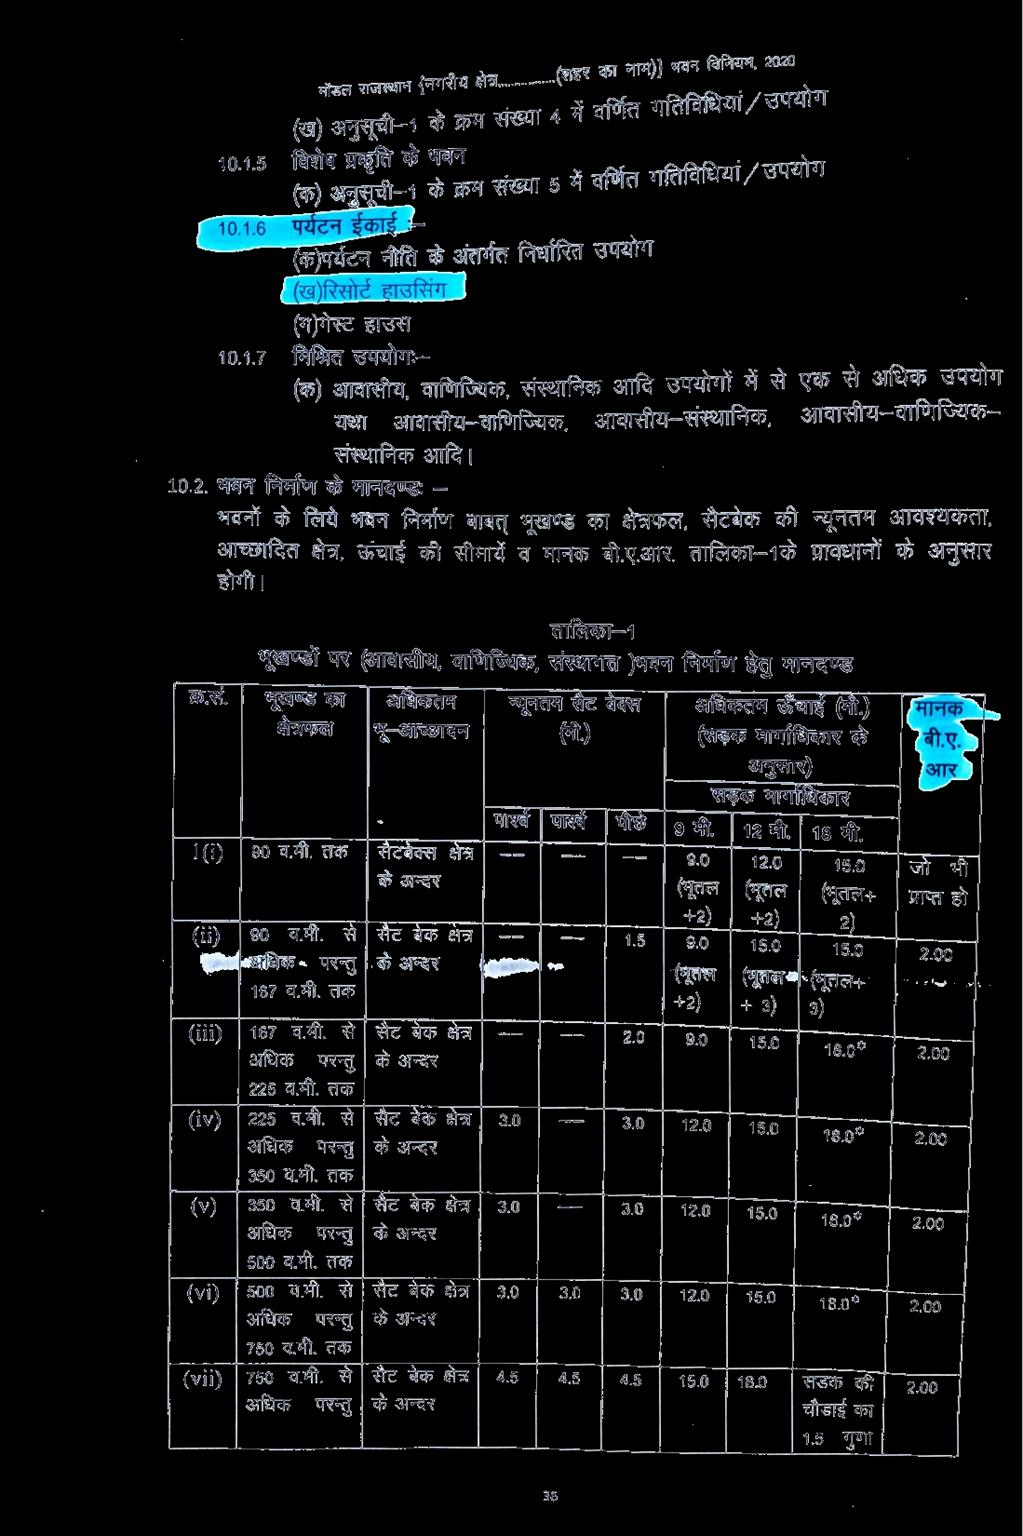 मॉडल राजस्थान {नगरीय क्षेत्र..............(शहर का नाम)} भवन विनियम, 2020
(ख) अनुसूची–1 के क्रम संख्या 4 में वर्णित गतिविधियां/उपयोग
10.1.5 विशेष प्रकृति के भवन
(क) अनुसूची–1 के क्रम संख्या 5 में वर्णित गतिविधियां/उपयोग
10.1.6 पर्यटन ईकाई :–
(क)पर्यटन नीति के अंतर्गत निर्धारित उपयोग
(ख)रिसोर्ट हाउसिंग
(ग)गेस्ट हाउस
10.1.7 मिश्रित उपयोगः–
(क) आवासीय, वाणिज्यिक, संस्थानिक आदि उपयोगों में से एक से अधिक उपयोग
यथा आवासीय–वाणिज्यिक, आवासीय–संस्थानिक, आवासीय–वाणिज्यिक–
संस्थानिक आदि।
10.2. भवन निर्माण के मानदण्डः –
भवनों के लिये भवन निर्माण बाबत् भूखण्ड का क्षेत्रफल, सैटबेक की न्यूनतम आवश्यकता,
आच्छादित क्षेत्र, ऊंचाई की सीमायें व मानक बी.ए.आर. तालिका–1के प्रावधानों के अनुसार
होगी।
तालिका–1
भूखण्डों पर (आवासीय, वाणिज्यिक, संस्थागत )भवन निर्माण हेतु मानदण्ड
क्र.सं. भूखण्ड का अधिकतम न्यूनतम सैट बेक्स अधिकतम ऊँचाई (मी.) मानक
क्षेत्रफल भू–आच्छादन (मी.) (सड़क मार्गाधिकार के बी.ए.
अनुसार) आर
सड़क मार्गाधिकार
पार्श्व पार्श्व पीछे 9 मी. 12 मी. 18 मी.
1(i) 90 व.मी. तक सैटबेक्स क्षेत्र — — — 9.0 12.0 15.0 जो भी
के अन्दर (भूतल (भूतल (भूतल+ प्राप्त हो
+2) +2) 2)
(ii) 90 व.मी. से सैट बेक क्षेत्र — — 1.5 9.0 15.0 15.0 2.00
अधिक परन्तु के अन्दर (भूतल (भूतल (भूतल+
167 व.मी. तक +2) + 3) 3)
(iii) 167 व.मी. से सैट बेक क्षेत्र — — 2.0 9.0 15.0 18.0* 2.00
अधिक परन्तु के अन्दर
225 व.मी. तक
(iv) 225 व.मी. से सैट बेक क्षेत्र 3.0 — 3.0 12.0 15.0 18.0* 2.00
अधिक परन्तु के अन्दर
350 व.मी. तक
(v) 350 व.मी. से सैट बेक क्षेत्र 3.0 — 3.0 12.0 15.0 18.0* 2.00
अधिक परन्तु के अन्दर
500 व.मी. तक
(vi) 500 व.मी. से सैट बेक क्षेत्र 3.0 3.0 3.0 12.0 15.0 18.0* 2.00
अधिक परन्तु के अन्दर
750 व.मी. तक
(vii) 750 व.मी. से सैट बेक क्षेत्र 4.5 4.5 4.5 15.0 18.0 सडक की 2.00
अधिक परन्तु के अन्दर चौडाई का
1.5 गुणा
35